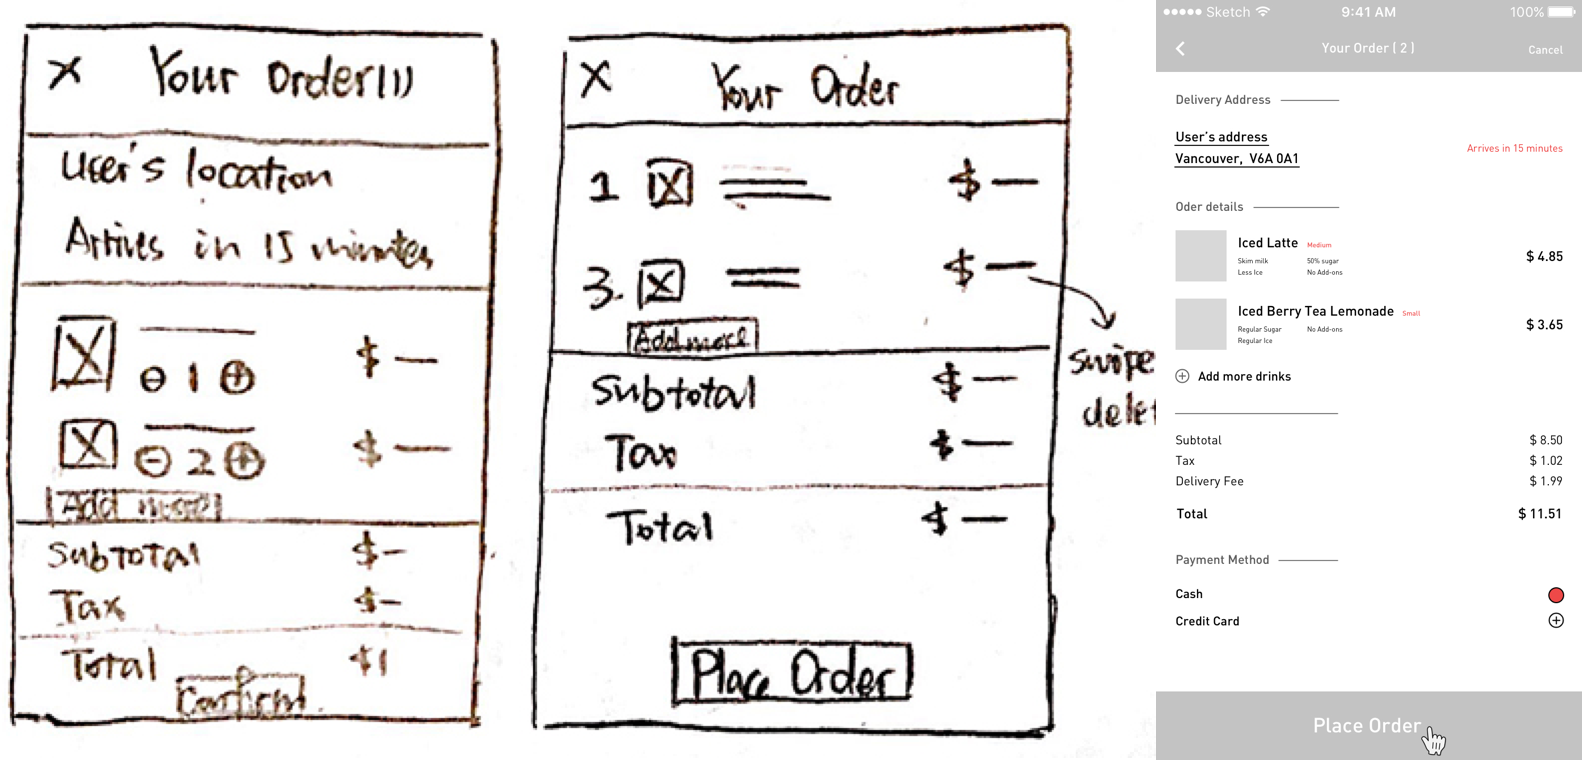 X Your Order(1)
User's location
Arrives in 15 minutes
$ —
1
$ —
2
Add more
Subtotal $ —
Tax $ —
Total $1
Confirm
X Your Order
1 $ —
3. $ —
Add more
swipe
Subtotal $ —
Tax $ —
Total $ —
Place Order
Sketch 9:41 AM 100%
Your Order ( 2 ) Cancel
Delivery Address
User's address
Vancouver, V6A 0A1
Arrives in 15 minutes
Oder details
Iced Latte Medium
Skim milk 50% sugar
Less Ice No Add-ons
$ 4.85
Iced Berry Tea Lemonade Small
Regular Sugar No Add-ons
Regular Ice
$ 3.65
Add more drinks
Subtotal $ 8.50
Tax $ 1.02
Delivery Fee $ 1.99
Total $ 11.51
Payment Method
Cash
Credit Card
Place Order